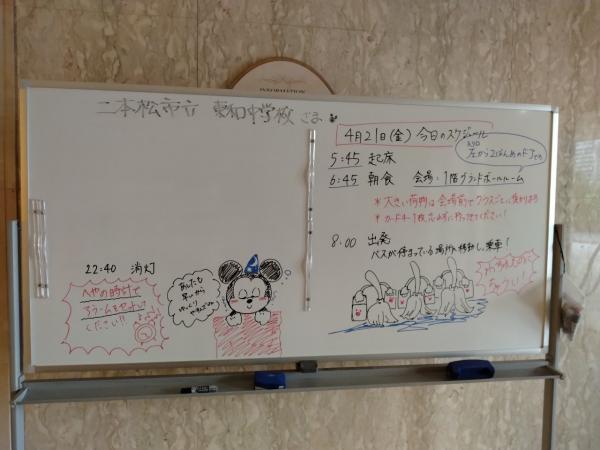 INFORMATION
二本松市立 東和中学校 さま
22:40 消灯
へやの時計で
アラームをセットして
ください!!
あしたも
早いから
ゆっくり
4月21日(金) 今日のスケジュール
5:45 起床
6:45 朝食 会場:1階グランドボールルーム
入口
左から2ばんめのドアです
*大きい荷物は会場前でクラスごとに預かります
*カードキー1枚 忘れずに持ってきてください!
8:00 出発
バスが停まっている場所へ移動し、乗車!
ちゅうい!